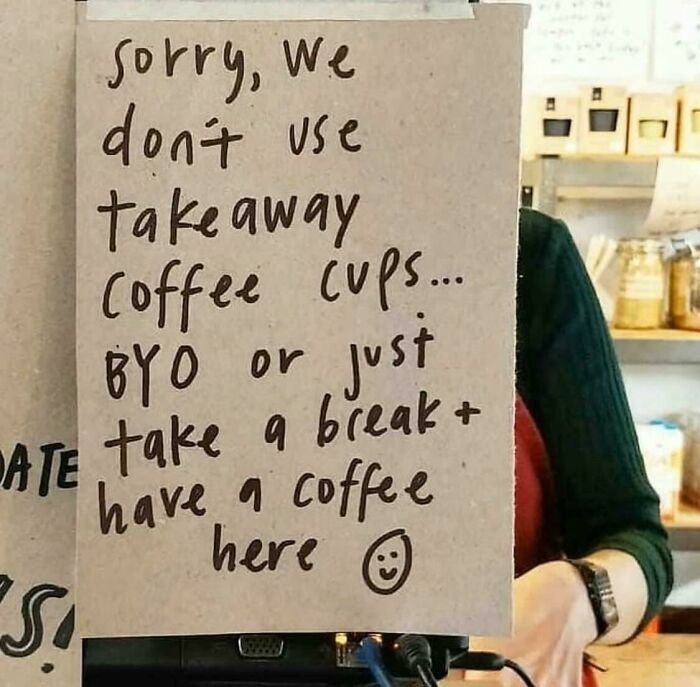 sorry, we
don't use
takeaway
coffee cups...
BYO or just
take a break +
have a coffee
here ☺
ATE
S!